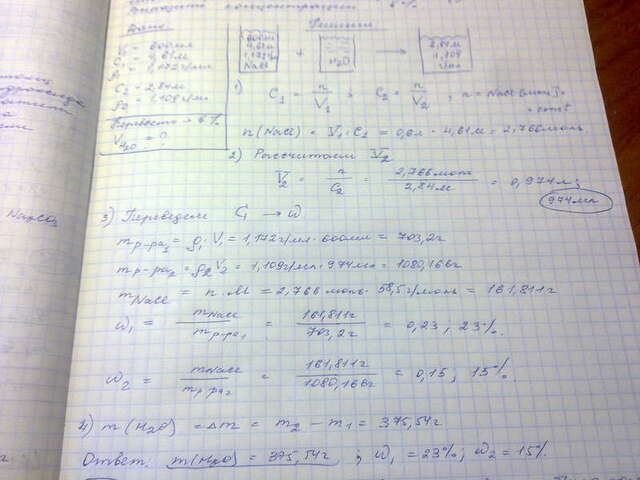 концентрации в %
Дано
Решение
V₁ = 600мл
C₁ = 4,61м
ρ₁ = 1,172г/мл
C₂ = 2,84м
ρ₂ = 1,109г/мл
Перевести → в %
V H₂O = ?
600мл
4,61м
1,172г
NaCl
+
H₂O
→
2,84м
1,109
г/мл
1) C₁ = n/V₁ ; C₂ = n/V₂ ; n = NaCl
const
n(NaCl) = V₁·C₁ = 0,6л · 4,61м = 2,766моль
2) Рассчитаем V₂
V₂ = n/C₂ = 2,766моль/2,84м = 0,974л;
974мл
Na₂CO₃
3) Переведем C₁ → ω
m р-ра₁ = ρ₁·V₁ = 1,172г/мл · 600мл = 703,2г
m р-ра₂ = ρ₂·V₂ = 1,109г/мл · 974мл = 1080,166г
m NaCl = n·M = 2,766моль · 58,5г/моль = 161,811г
ω₁ = m NaCl/m р-ра₁ = 161,811г/703,2г = 0,23 ; 23%.
ω₂ = m NaCl/m р-ра₂ = 161,811г/1080,166г = 0,15 ; 15%.
4) m(H₂O) = Δm = m₂ - m₁ = 375,54г
Ответ: m(H₂O) = 375,54г ; ω₁ = 23%; ω₂ = 15%.